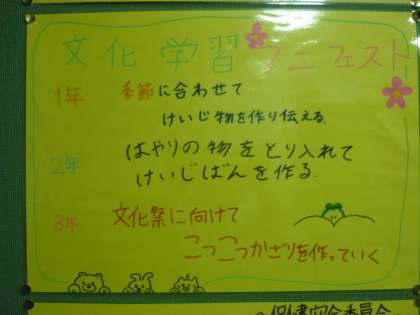 文化学習マニフェスト
1年 季節に合わせて
けいじ物を作り伝える.
2年 はやりの物をとり入れて
けいじばんを作る.
3年 文化祭に向けて
こつこつかざりを作っていく